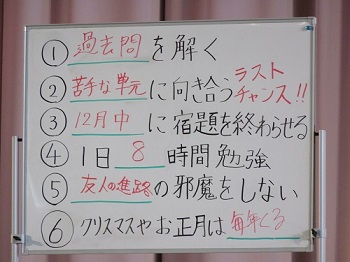 ① 過去問を解く
② 苦手な単元に向き合うラストチャンス!!
③ 12月中に宿題を終わらせる
④ 1日8時間勉強
⑤ 友人の進路の邪魔をしない
⑥ クリスマスやお正月は毎年くる